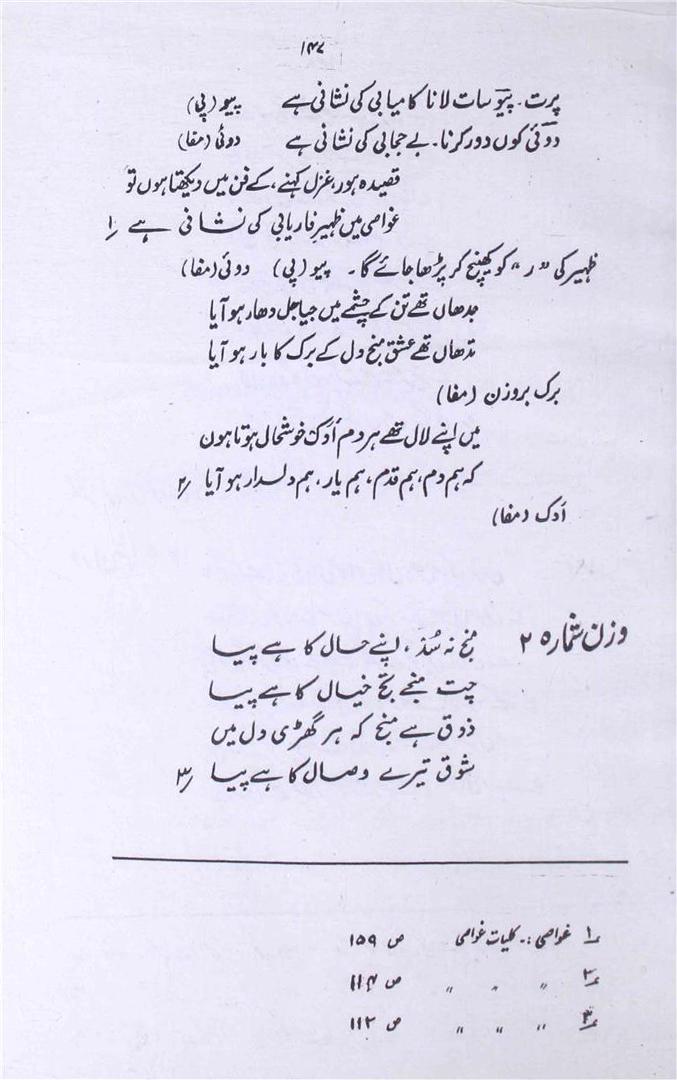 ۱۴۷
پرت۔ پیو سات لانا کامیابی کی نشانی ہے پیو (پی)
دوئی کوں دور کرنا۔ بے حجابی کی نشانی ہے دوئی (مفا)
قصیدہ ہور، غزل کہنے، کے فن میں دیکھتا ہوں تو
غواصی میں ظہیرِ فاریابی کی نشانی ہے ؍۱
ظہیر کی "ر" کو کھینچ کر پڑھا جائے گا۔ پیو (پی) دوئی (مفا)
جدھاں تھے تن کے چشمے میں جیا جل دھار ہو آیا
تدھاں تھے عشق منج دل کے برک کا بار ہو آیا
برک بروزن (مفا)
میں اپنے لال تھے ہر دم اَدَک خوشحال ہوتا ہون
کہ ہم دم، ہم قدم، ہم یار، ہم دلدار ہو آیا ؍۲
اَدَک (مفا)
وزن شمارہ ۲ منج نہ سُد، اپنے حال کا ہے پیا
چت منجے تج خیال کا ہے پیا
ذوق ہے منج کہ ہر گھڑی دل میں
شوق تیرے وصال کا ہے پیا ؍۳
؍۱ غواصی :۔ کلیات غواصی ص ۱۵۹
؍۲ " " " ص ۱۱۴
؍۳ " " " ص ۱۱۲